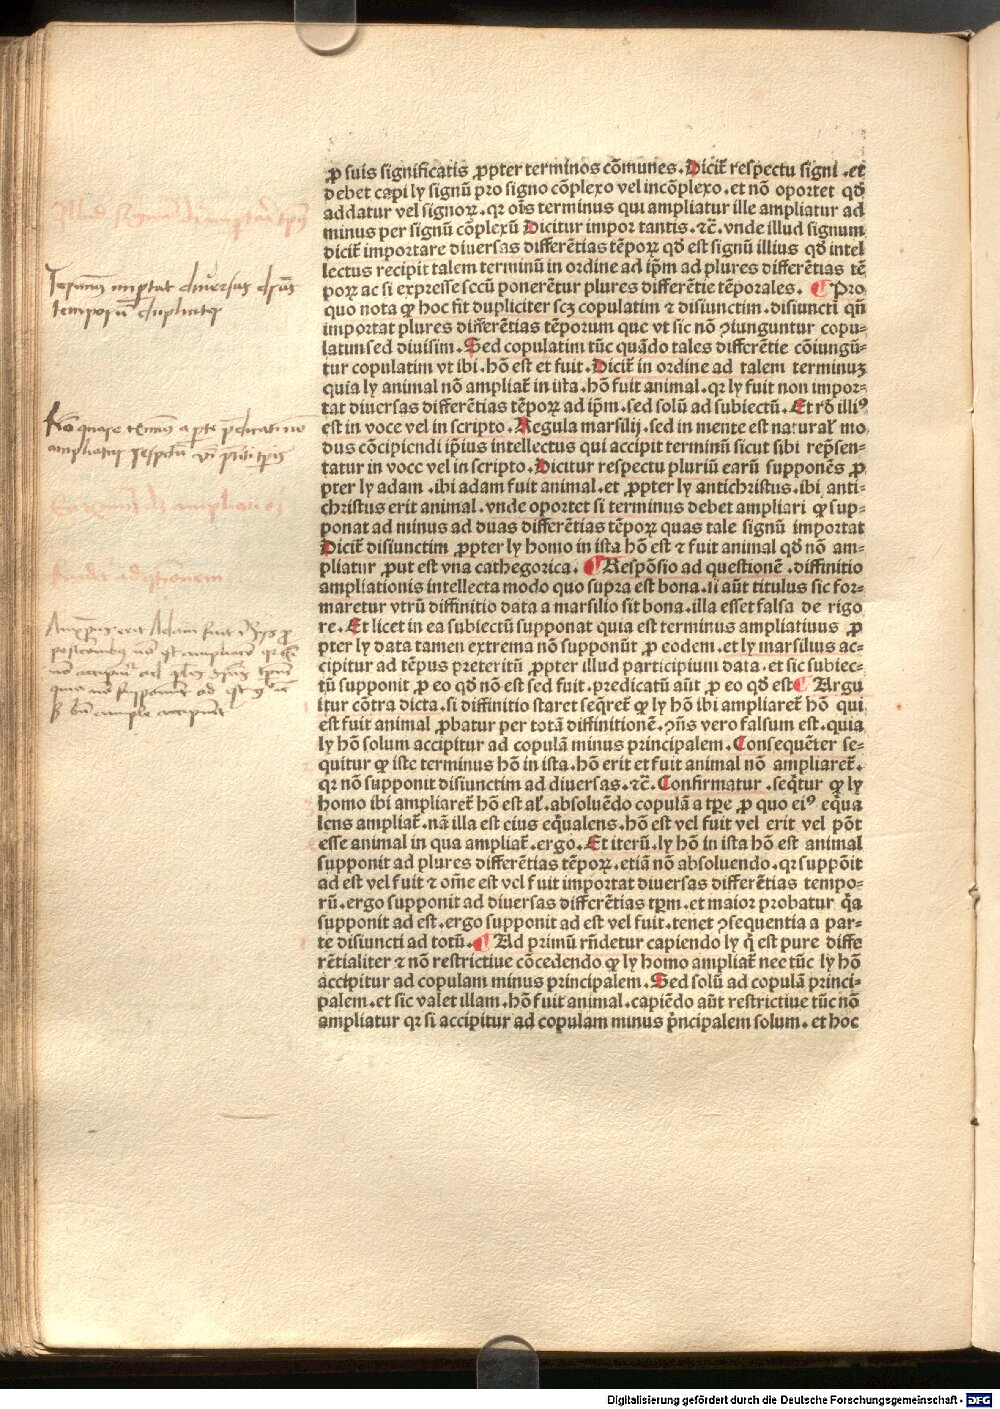 ꝓ suis significatis ꝓpter terminos cõmunes. Dicit̃ respectu signi .et
debet capi ly signũ pro signo cõplexo vel incõplexo .et nõ oportet qđ
addatur vel signoꝝ. qꝛ oẽs terminus qui ampliatur ille ampliatur ad
minus per signũ cõplexũ Dicitur impor tantis .⁊c̃. vnde illud signum
dicit̃ importare diuersas differẽtias tẽpoꝝ qđ est signũ illius qđ intel
lectus recipit talem terminũ in ordine ad ip̃m ad plures differẽtias tẽ
poꝝ ac si expresse sccũ ponerẽtur plures differẽtie tẽporales. ¶ Pro
quo nota ꝙ hoc fit dupliciter scꝫ copulatim ⁊ disiunctim. disiuncti qñ
importat plures differẽtias tẽporum que vt sic nõ ꝯiunguntur copu⸗
latim sed diuisim. Sed copulatim tũc quãdo tales differẽtie cõiungũ⸗
tur copulatim vt ibi. hõ est et fuit. Dicit̃ in ordine ad talem terminuꝫ
quia ly animal nõ ampliat̃ in ista. hõ fuit animal. qꝛ ly fuit non impor⸗
tat diuersas differẽtias tẽpoꝝ ad ip̃m. sed solũ ad subiectũ. Et rõ illiꝰ
est in voce vel in scripto. Regula marsilij. sed in mente est natural̃ mo
dus cõcipiendi ip̃ius intellectus qui accipit terminũ sicut sibi rep̃sen⸗
tatur in voce vel in scripto. Dicitur respectu pluriũ earũ supponẽs ꝓ
pter ly adam .ibi adam fuit animal .et ꝓpter ly antichristus .ibi anti⸗
christus erit animal. vnde oportet si terminus debet ampliari ꝙ sup⸗
ponat ad minus ad duas differẽtias tẽpoꝝ quas tale signũ importat
Dicit̃ disiunctim ꝓpter ly homo in ista hõ est ⁊ fuit animal qđ nõ am⸗
pliatur ꝓut est vna cathegorica. ¶ Respõsio ad questionẽ .diffinitio
ampliationis intellecta modo quo supra est bona. si aũt titulus sic for⸗
maretur vtrũ diffinitio data a marsilio sit bona. illa esset falsa de rigo
re. Et licet in ea subiectũ supponat quia est terminus ampliatiuus ꝓ
pter ly data tamen extrema nõ supponũt ꝓ eodem. et ly marsilius ac⸗
cipitur ad tẽpus preteritũ ꝓpter illud participium data. et sic subiec⸗
tũ supponit ꝓ eo qđ nõ est sed fuit. predicatũ aũt ꝓ eo qđ est ¶ Argu
itur cõtra dicta. si diffinitio staret seq̃ret̃ ꝙ ly hõ ibi ampliaret̃ hõ qui
est fuit animal ꝓbatur per totã diffinitionẽ. ꝯñs vero falsum est. quia
ly hõ solum accipitur ad copulã minus principalem. Consequẽter se⸗
quitur ꝙ iste terminus hõ in ista. hõ erit et fuit animal nõ ampliaret̃.
qꝛ nõ supponit disiunctim ad diuersas .⁊c̃. Confirmatur .seq̃tur ꝙ ly
homo ibi ampliaret̃ hõ est al̃. absoluẽdo copulã a tp̃e ꝓ quo eiꝰ eq̃ua
lens ampliat̃. nã illa est eius eq̃ualens. hõ est vel fuit vel erit vel põt
esse animal in qua ampliat̃. ergo. Et iterũ. ly hõ in ista hõ est animal
supponit ad plures differẽtias tẽpoꝝ. etiã nõ absoluendo. qꝛ suppõit
ad est vel fuit ⁊ om̃e est vel fuit importat diuersas differẽtias tempo⸗
rũ. ergo supponit ad diuersas differẽtias tp̃m. et maior probatur q̃a
supponit ad est. ergo supponit ad est vel fuit. tenet ꝯsequentia a par⸗
te disiuncti ad totũ. ¶ Ad primũ rñdetur capiendo ly q̃ est pure diffe
rẽtialiter ⁊ nõ restrictiue cõcedendo ꝙ ly homo ampliat̃ nec tũc ly hõ
accipitur ad copulam minus principalem. Sed solũ ad copulã princi⸗
palem. et sic valet illam. hõ fuit animal. capiẽdo aũt restrictiue tũc nõ
ampliatur qꝛ si accipitur ad copulam minus p̃ncipalem solum. et hoc
Digitalisierung gefördert durch die Deutsche Forschungsgemeinschaft - DFG